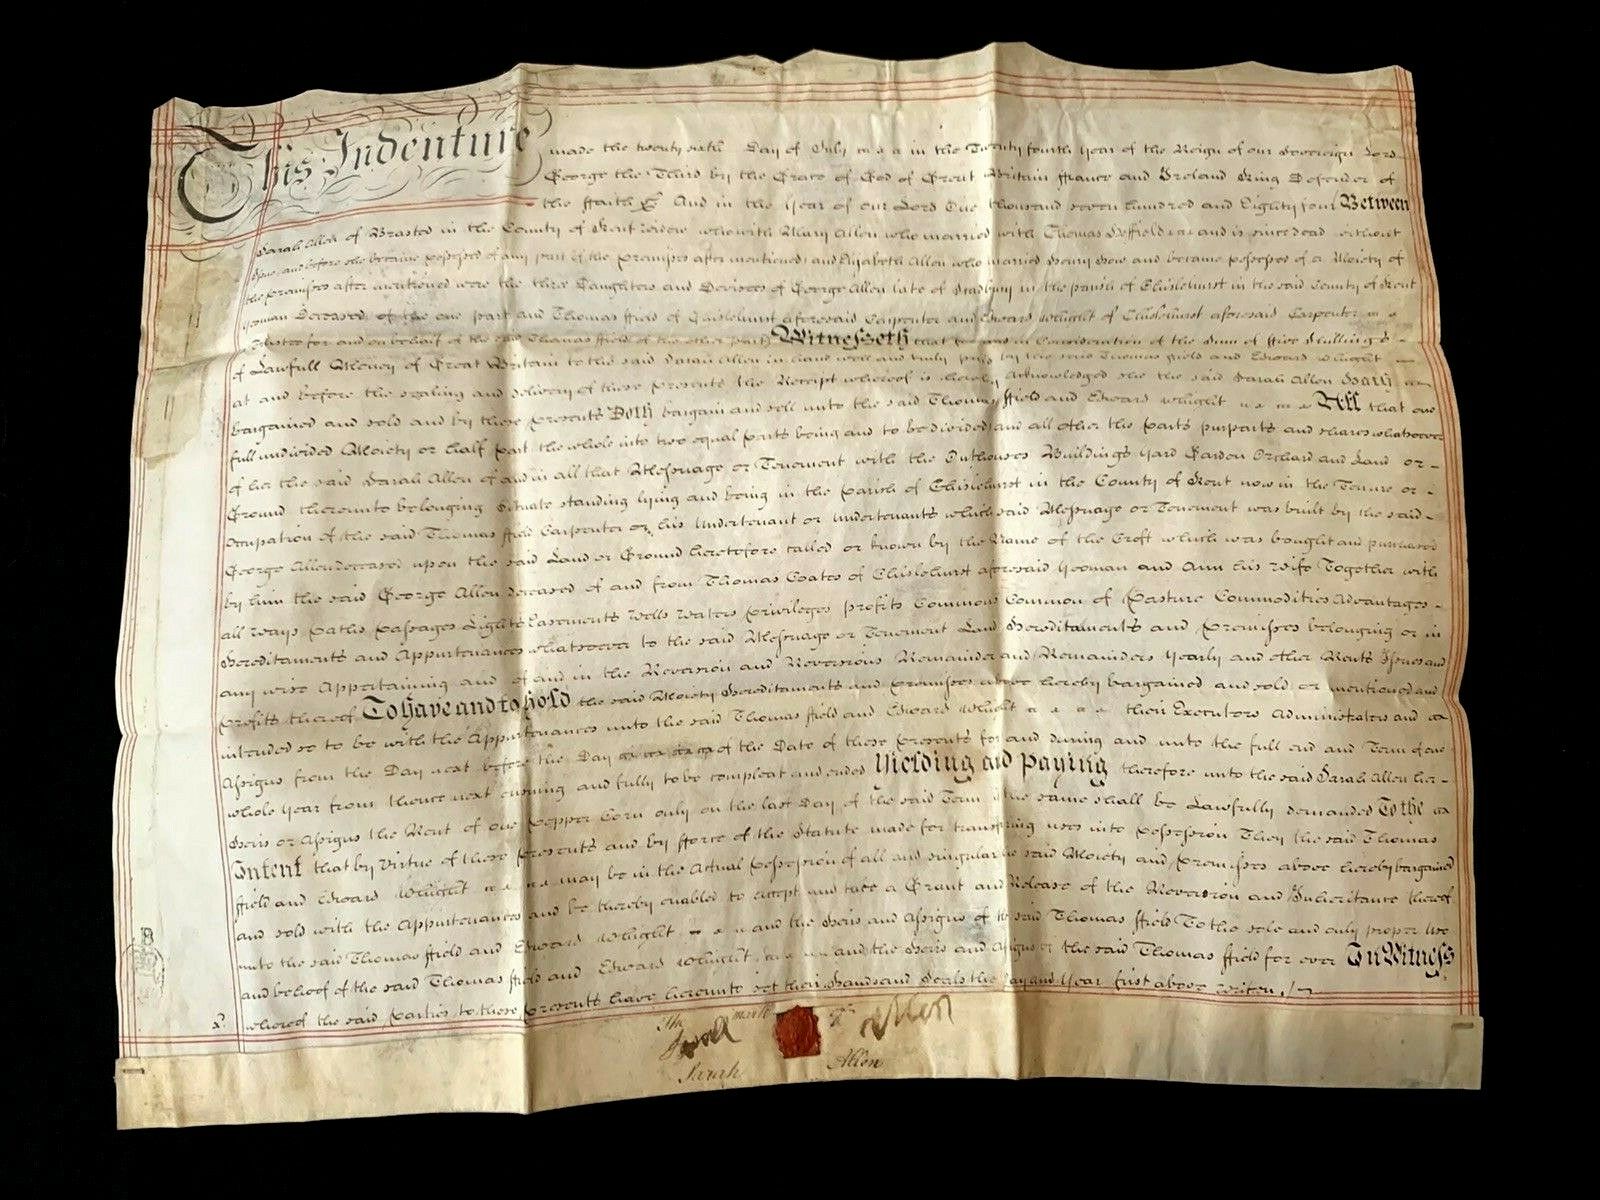 This Indenture made the twenty sixth Day of July in the Twenty fourth Year of the Reign of our Sovereign Lord
George the Third by the Grace of God of Great Britain ffrance and Ireland King Defender of
the ffaith &c And in the Year of our Lord One thousand seven hundred and Eighty four Between
Sarah Allen of Brasted in the County of Kent Widow who with Mary Allen who married with Thomas and is since dead without
Issue and before she became possessed of any part of the Premises after mentioned and Elizabeth Allen who married Henry How and became possessed of a Moiety of
the premises after mentioned were the three Daughters and Devisees of George Allen late of in the parish of Chislehurst in the said County of Kent
Yeoman Deceased of the one part and Thomas ffield of Chislehurst aforesaid Carpenter and Edward Whught of Chislehurst aforesaid Carpenter
for and on behalf of the said Thomas ffield of the other part Witnesseth that for and in Consideration of the Sum of ffive Shillings
of Lawfull Money of Great Britain to the said Sarah Allen in hand well and truly paid by the said Thomas ffield and Edward Whught
at and before the sealing and delivery of these presents the Receipt whereof is hereby Acknowledged she the said Sarah Allen Hath
bargained and sold and by these presents Doth bargain and sell unto the said Thomas ffield and Edward Whught All that one
full undivided Moiety or half part the whole into two equal parts being and to be divided and all other the parts purparts and shares whatsoever
of her the said Sarah Allen of and in all that Messuage or Tenement with the Outhouses Buildings Yard Garden Orchard and Land or
Ground thereunto belonging Situate standing lying and being in the Parish of Chislehurst in the County of Kent now in the Tenure or
Occupation of the said Thomas ffield Carpenter or his Undertenant or Undertenants which said Messuage or Tenement was built by the said
George Allen deceased upon the said Land or Ground heretofore called or known by the Name of the Croft which was bought and purchased
by him the said George Allen deceased of and from Thomas Coates of Chislehurst aforesaid Yeoman and Ann his Wife Together with
all Ways Paths Passages Lights Easements Wells Waters Priviledges profits Commons Common of Pasture Commodities Advantages
Hereditaments and Appurtenances whatsoever to the said Messuage or Tenement Land Hereditaments and Premisses belonging or in
any wise Appertaining and of and in the Reversion and Reversions Remainder and Remainders Yearly and other Rents Issues and
profits thereof To Have and to hold the said Moiety Hereditaments and premisses above hereby bargained and sold or mentioned and
intended so to be with the Appurtenances unto the said Thomas ffield and Edward Whught their Executors Administrators and
Assigns from the Day next before the Day of the Date of these presents for and during and unto the full end and Term of one
whole Year from thence next ensuing and fully to be compleat and ended Yielding and paying therefore unto the said Sarah Allen her
Heirs or Assigns the Rent of one Pepper Corn only on the last Day of the said Term if the same shall be Lawfully demanded To the
Intent that by Virtue of these presents and by fforce of the Statute made for transferring uses into possession They the said Thomas
ffield and Edward Whught may be in the Actual Possession of all and singular the said Moiety and premisses above hereby bargained
and sold with the Appurtenances and be thereby enabled to accept and take a Grant and Release of the Reversion and Inheritance thereof
unto the said Thomas ffield and Edward Whught and the Heirs and Assigns of the said Thomas ffield To the sole and only proper Use
and behoof of the said Thomas ffield and Edward Whught and the Heirs and Assigns of the said Thomas ffield for ever In Witness
whereof the said parties to these presents have hereunto set their Hands and Seals the Day and Year first above written
The mark of
Allen
Sarah Allen